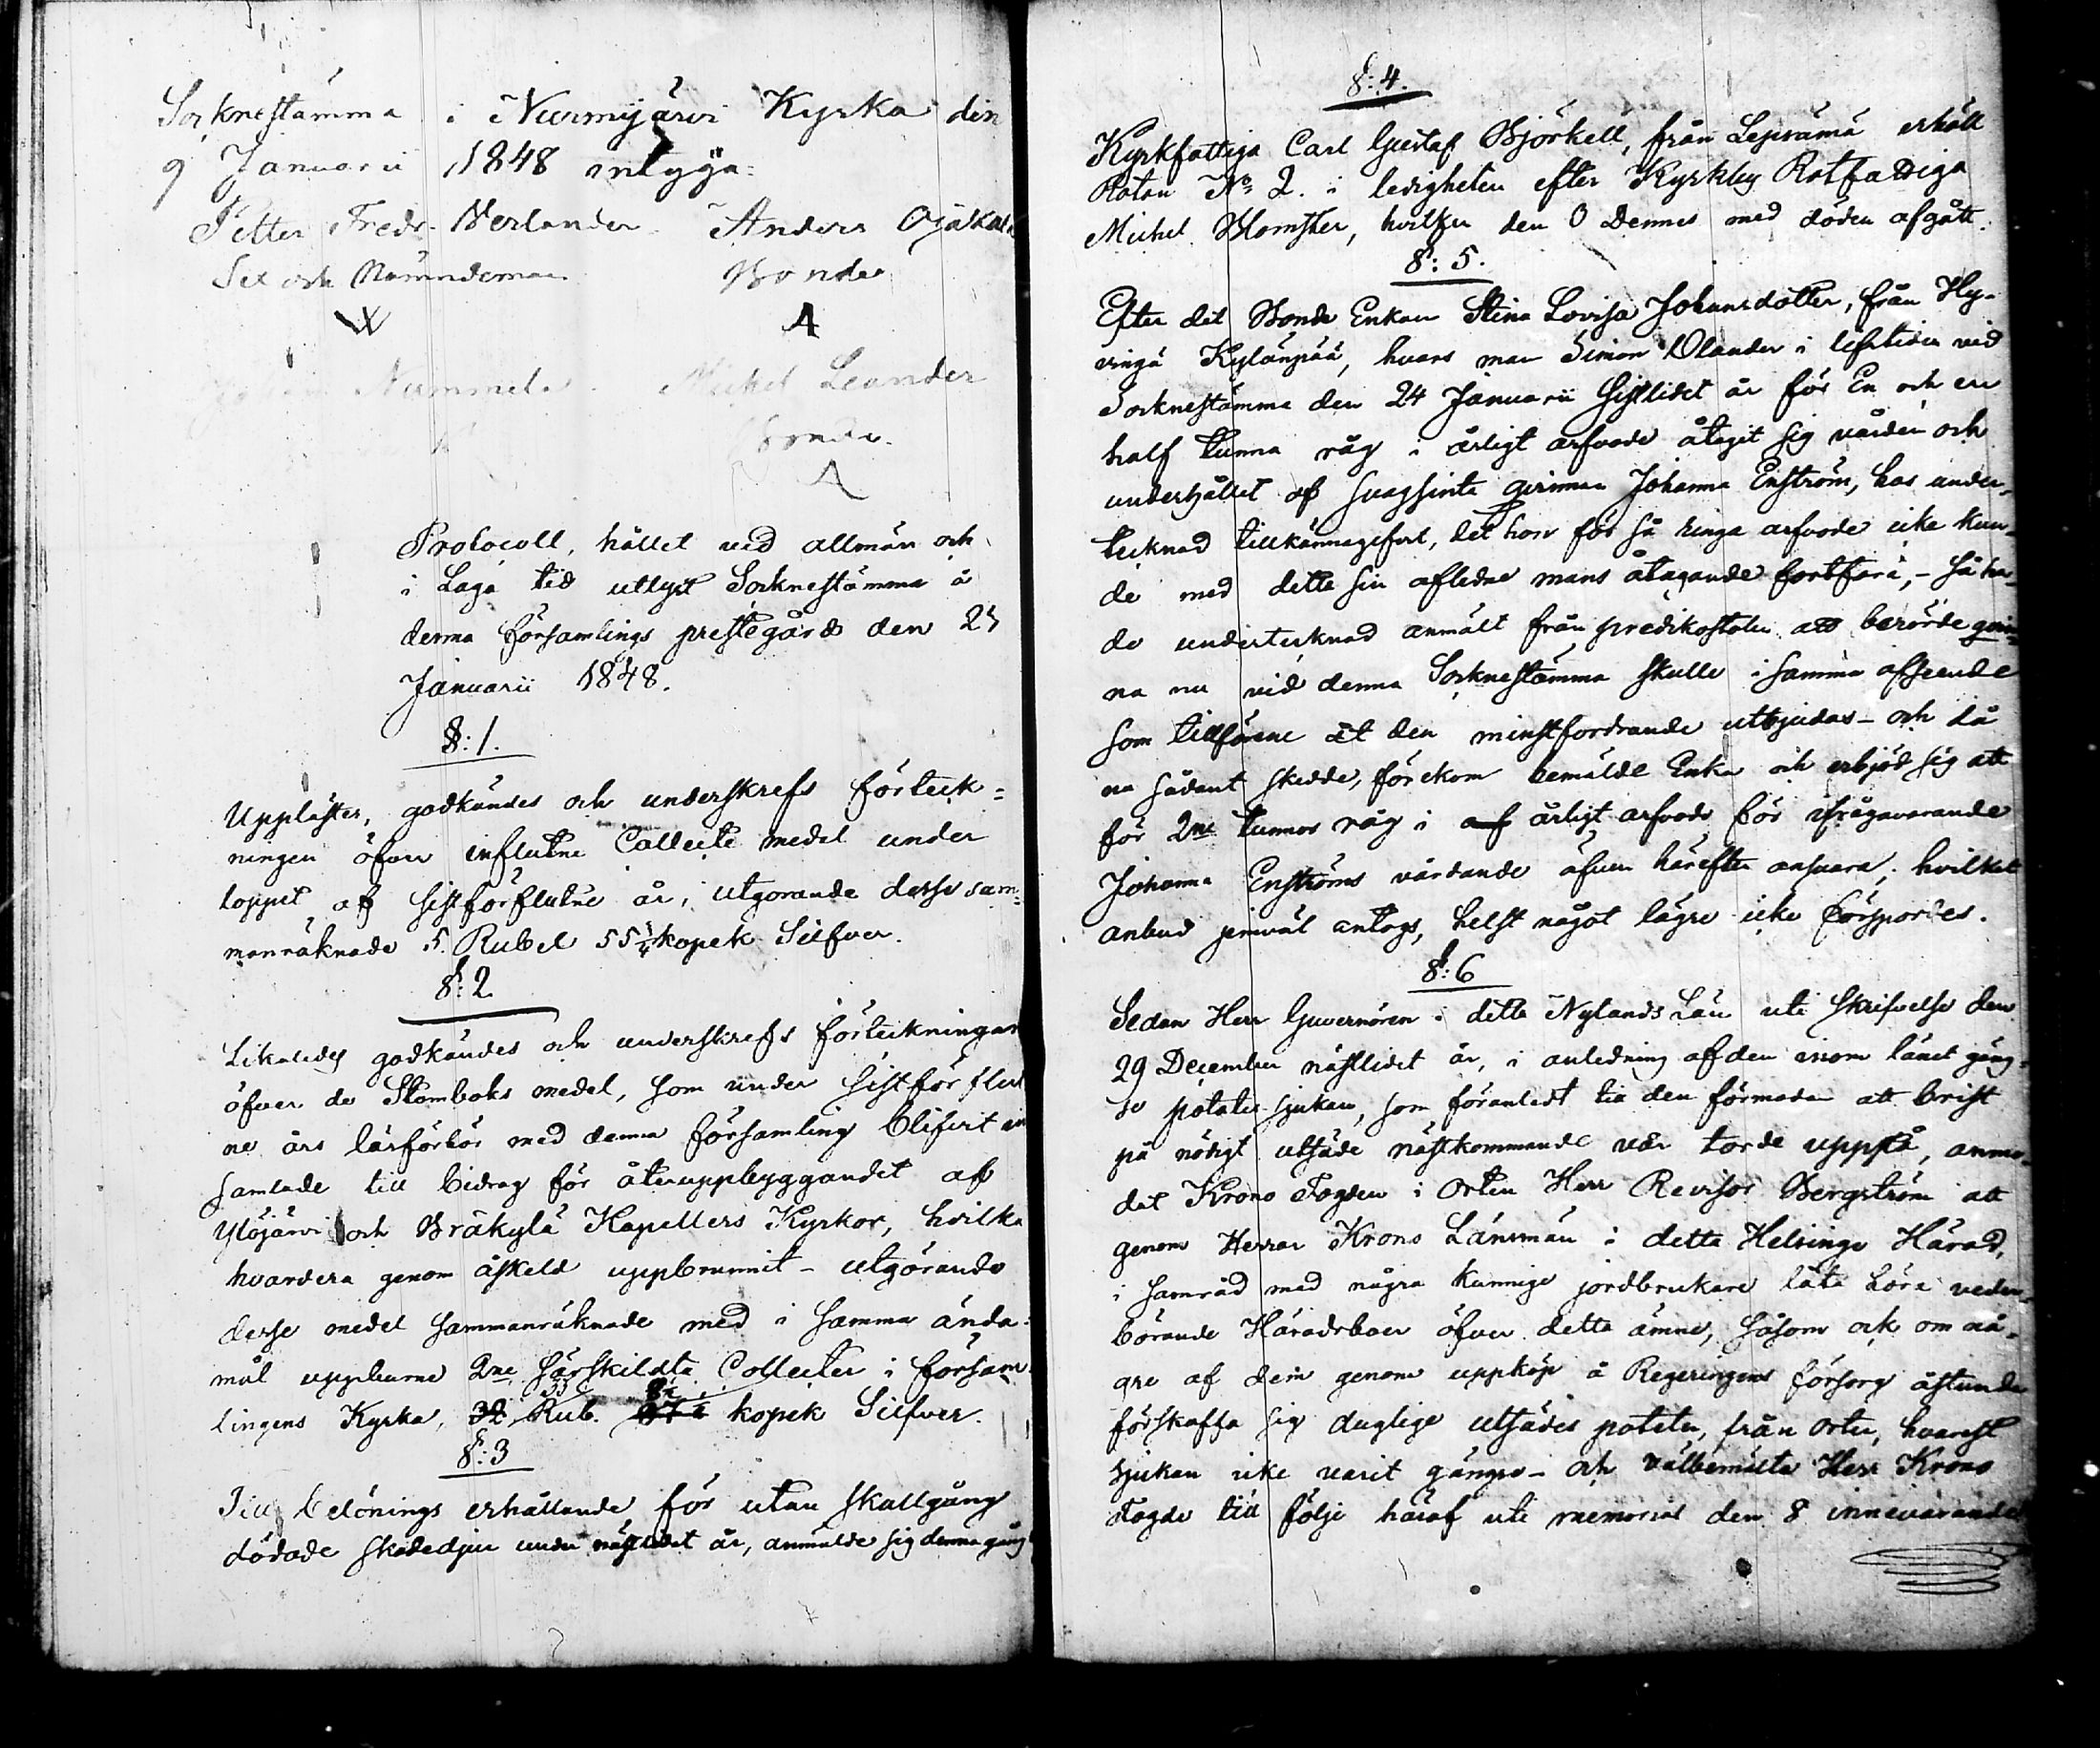 Sorknestämma i Nurmijärvi Kyrka den
9 Januarii 1848 intyga:
Petter Fredr. Verlander. Anders Ojakala
Sex och Nämndeman Bonde
W A
Johan Nummela. Michel Leander
Bonde.
A
Protocoll, hållet vid allmän och
i Laga tid utlyst Sorknestämma å
denna församlings prestegård den 23
Januarii 1848.
§: 1.
Upplästes, godkändes och underskrefs förteck=
ningen öfver influtne Collecte medel under
loppet af sistförflutne år, utgörande desse sam=
manräknade 5. Rubel 55 1/4 kopek Silfver.
§: 2
Likaledes godkändes och underskrefs förteckningar
öfver de Stomboks medel, som under sistförflut
ne års läsförhör med denna församling blifvit in
samlade till bidrag för återuppbyggandet af
Ylöjärvi och Bräkylä Kapellers Kyrkor, hvilka
hvardera genom åskeld uppbrunnit – utgörande
desse medel sammanräknade med i samma ända=
mål uppburne 2ne särskildta Collecter i försam
lingens Kyrka, 33 Rub. kopek Silfver.
§: 3
Till belönings erhållande för utan skallgång
dödade skadedjur under nästlidet år, anmälde sig denna gång
§: 4.
Kyrkfattiga Carl Gustaf Björkell, från Lepsämä erhöll
Rotan No 2. i ledigheten efter Kyrkby Rotfattiga
Michel Blomster, hvilken den 0 Dennes med döden afgått.
§: 5.
Efter det Bonde Enkan Stina Lovisa Johansdotter, från Hy-
vingä Kylänpää, hvars man Simon Olander i lifstiden vid
Sorknestämma den 24 Januarii sistlidet år för En och en
half tunna råg i årligt arfvode åtagit sig vården och
underhållet af svagsinta qvinnan Johanna Enström, hos under-
tecknad tillkännagifvit, det hon för så ringa arfvode icke kun-
de med detta sin aflidne mans åtagande fortfara, – så ha-
de undertecknad anmält från predikstolen att berörde qvin-
na nu vid denna Sorknestämma skulle i samma afseende
som tillförene åt den minstfordrande utbjudas – och då
nu sådant skedde, förekom bemälde Enka och erbjöd sig att
för 2ne tunnor råg i af årligt arfvode för ifrågavarande
Johanna Enströms vårdande äfven härefter ansvara; hvilket
anbud jemväl antogs, helst något lägre icke försportes.
§: 6
Sedan Herr Guvernören i detta Nylands Län uti skrifvelse den
29 December nästlidet år, i anledning af den inom länet gäng-
se potates sjukan, som föranledt till den förmodan att brist
på nödigt utsäde nästkommande vår torde uppstå, anmo-
dat Krono Fogden i Orten Herr Revisor Bergström att
genom Herrar Krono Länsmän i detta Helsinge Härad,
i samråd med några kunnige jordbrukare låta höra veder-
börande Häradsboer öfver detta ämne, såsom ock om nå-
gre af dem genom uppköp å Regeringens försorg åstunda
förskaffa sig duglige utsädes potates, från orter, hvarest
sjukan icke varit gängse – och välbemälte Herr Krono
Fogde till följe häraf uti memorial den 8 innevarande